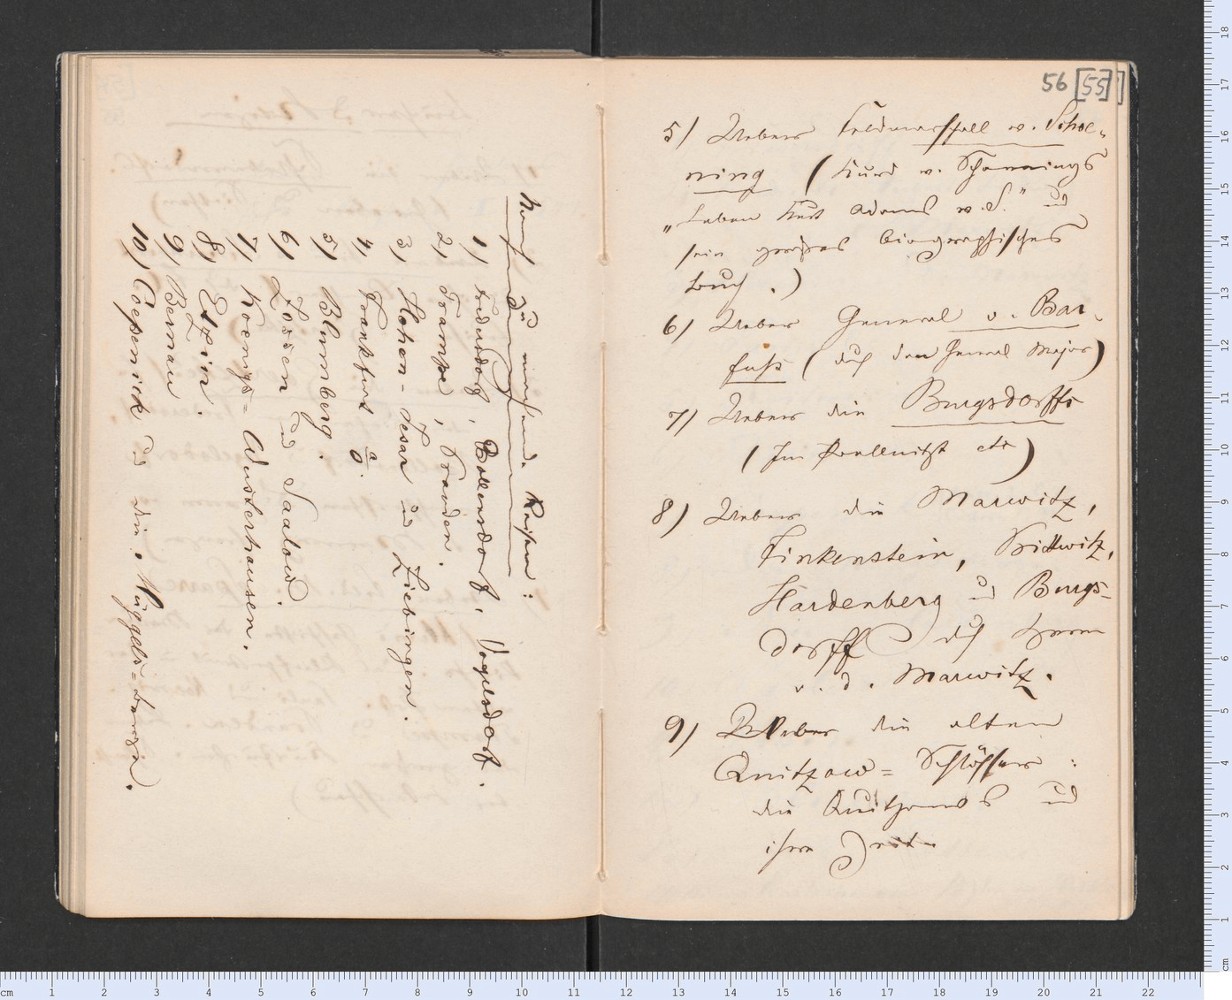 Noch zu machende Reisen:
1) Rudersdorf, Bollensdorf, Vogelsdorf.
2) Trampe, Prenden.
3) Hohen-Jesar und Ziebingen.
4) Frankfurt a/O.
5) Blumberg.
6) Zossen und Saalow.
7) Koenigs-Wusterhausen.
8) Etzin.
9) Bernau
10) Coepenick und die Müggels-Berge.
56 [55]
5) Ueber Feldmarschall v. Schoe-
ning (Kurd v. Schoenings
„Leben Hans Adams v. S." und
sein großes biographisches
Buch.)
6) Ueber General v. Bar-
fuß (durch den General Major)
7) Ueber die Burgsdorffs
(Im etc)
8) Ueber die Marwitz,
Finkenstein, Prittwitz,
Hardenberg und Burgs-
dorff durch Herrn
v. d. Marwitz.
9) Ueber die alten
Quitzow-Schlösser:
die Quitzows und
ihre Zeit